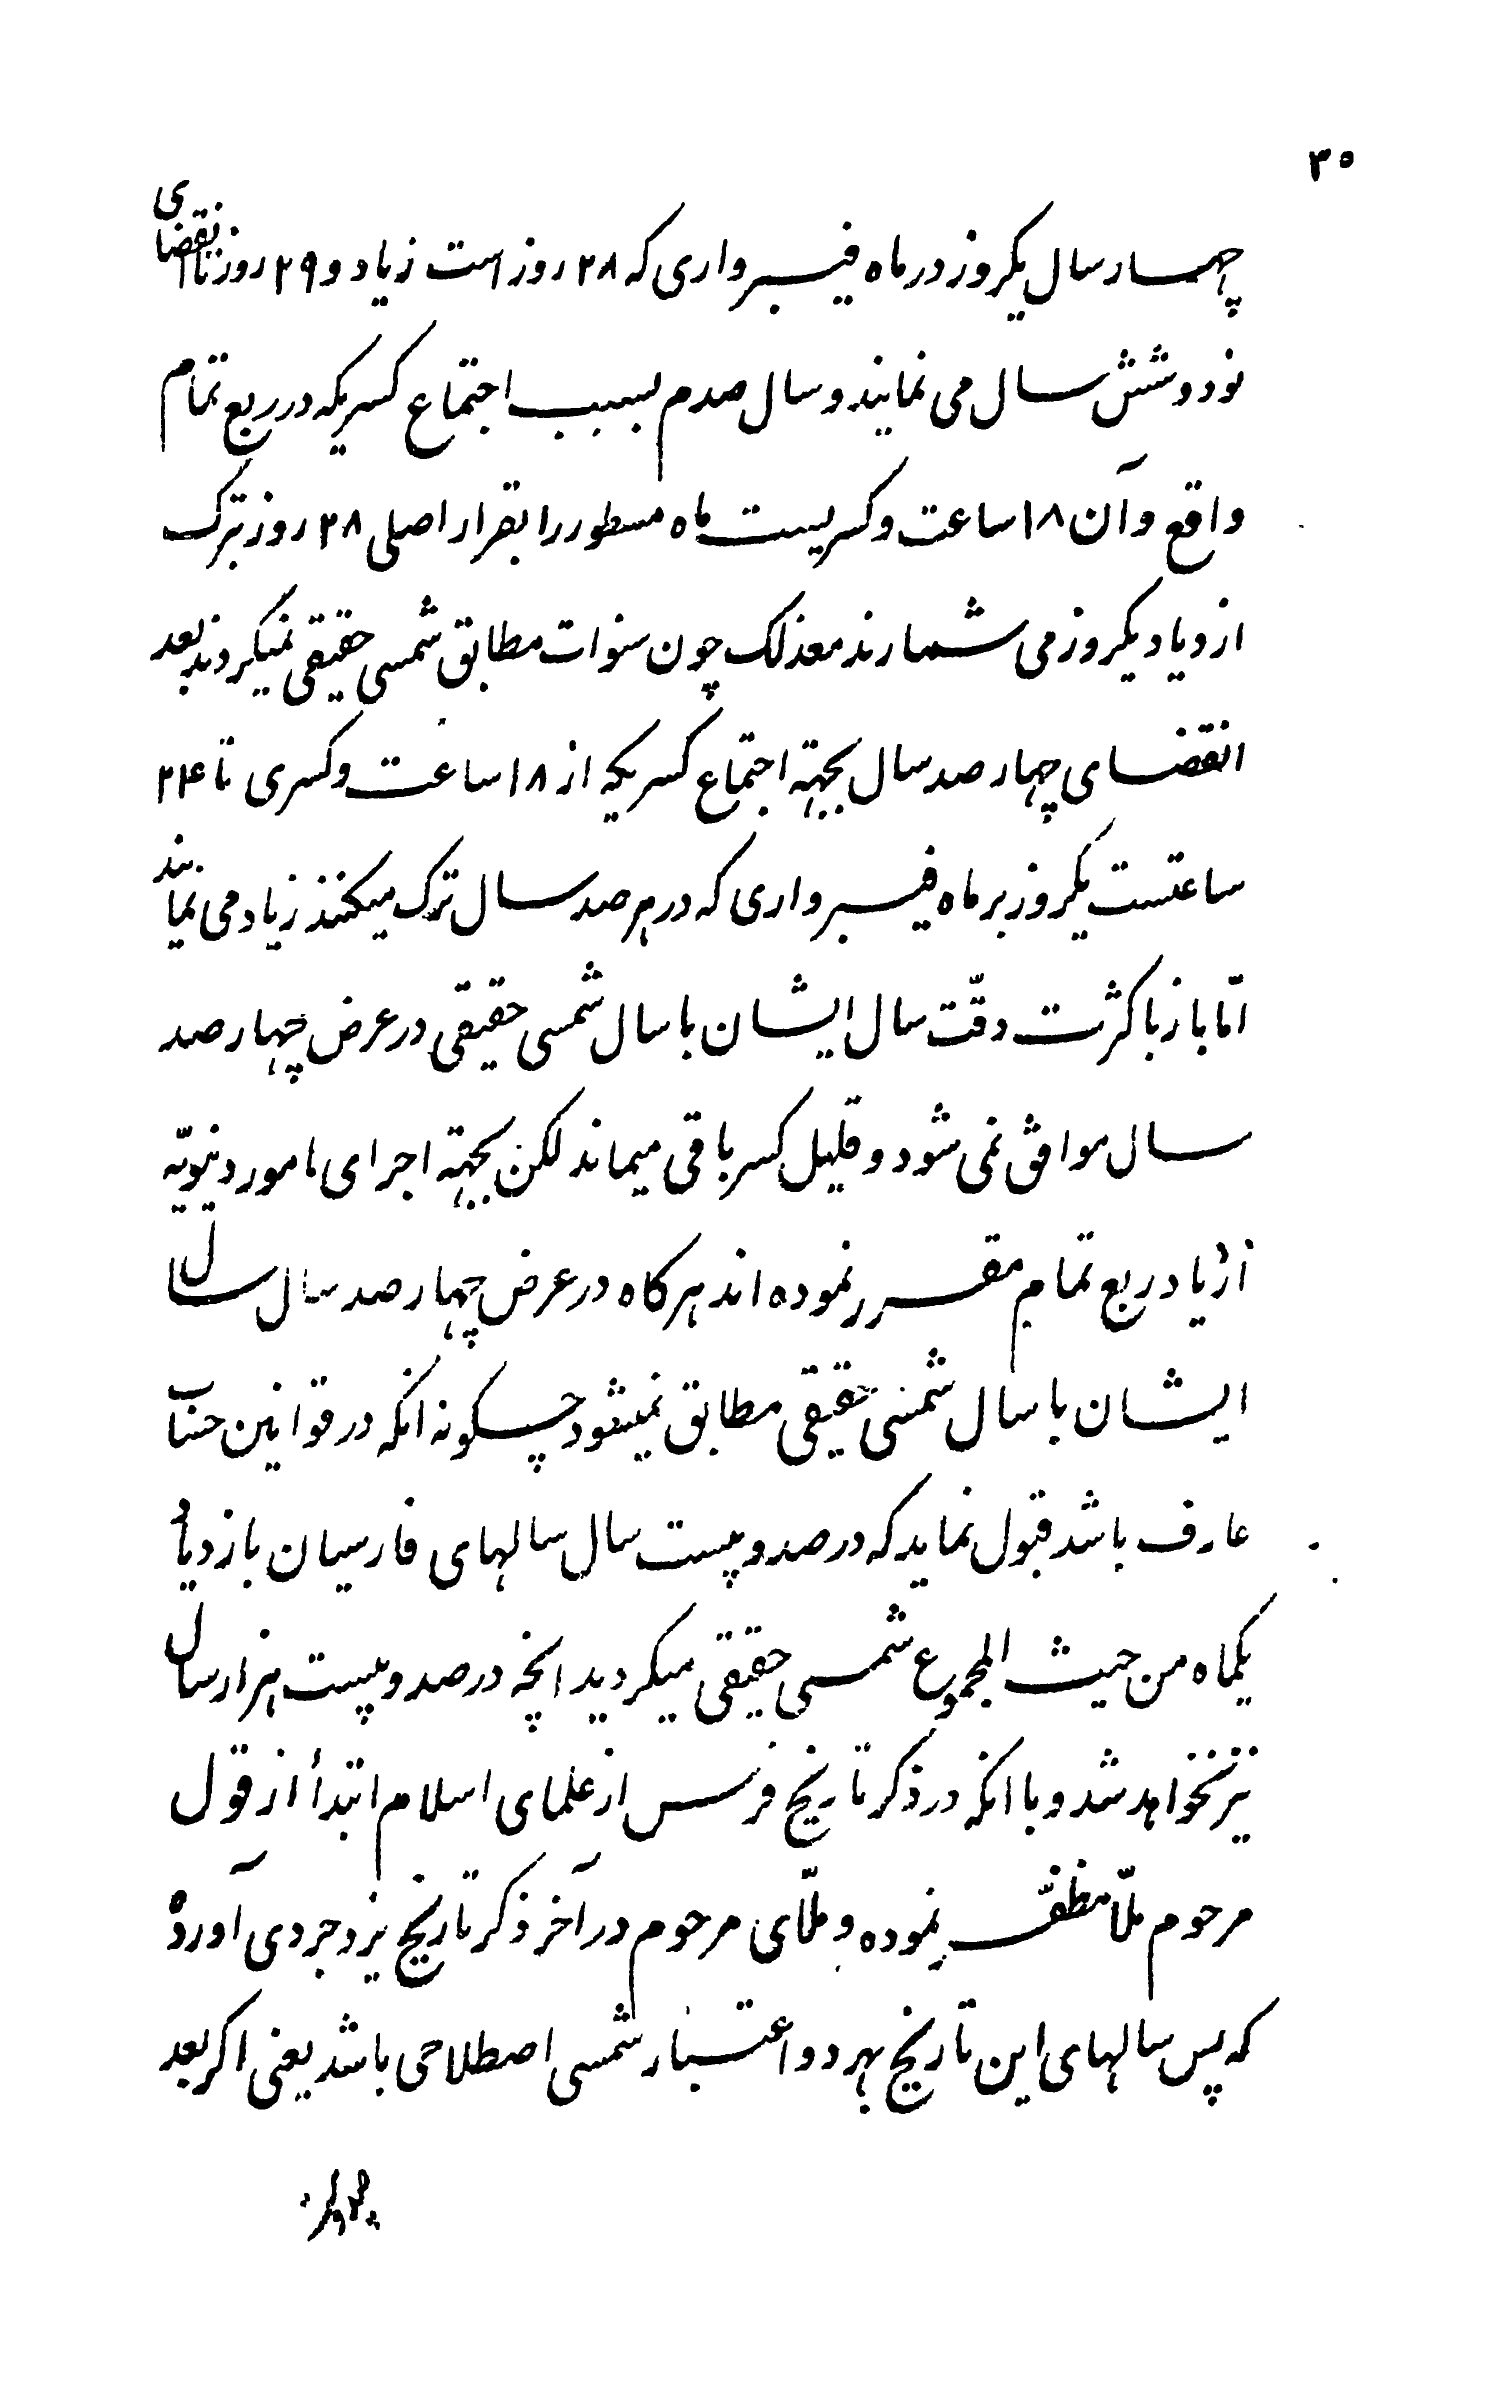 ۳۰
چهار سال یکروز در ماه فیبرواری که ۲۸ روز است زیاد و ۲۹ روز تا انقضای
نود و شش سال می نمایند و سال صدم بسبب اجتماع کسریکه در ربع تمام
واقع و آن ۱۸ ساعت و کسریست ماه مسطور را بقرار اصلی ۲۸ روز بترک
ازدیاد یکروز می شمارند معذلک چون سنوات مطابق شمسی حقیقی نمیکردند بعد
انقضای چهار صد سال بجهته اجتماع کسریکه از ۱۸ ساعت و کسری تا ۲۴
ساعتست یکروز بر ماه فیبرواری که در هر صد سال ترک میکنند زیاد می نمایند
امّا باز با کثرت دقّت سال ایشان با سال شمسی حقیقی در عرض چهار صد
سال موافق نمی شود و قلیل کسر باقی میماند لکن بجهته اجرای امور دنیویّه
ازیاد ربع تمام مقرر نموده اند هرکاه در عرض چهار صد سال سال
ایشان با سال شمسی حقیقی مطابق نمیشود چسکونه انکه در قوانین حساب
عارف باشد قبول نماید که در صد و بیست سال سالهای فارسیان بازدیاد
یکماه من حیث المجموع شمسی حقیقی میکردید انچه در صد و بیست هزار سال
نیز نخواهد شد و با انکه در ذکر تاریخ فرس از علمای اسلام ابتدأ از قول
مرحوم ملّا مظفّر نموده و ملّای مرحوم در آخر ذکر تاریخ یزدجردی آورده
که پس سالهای این تاریخ بهر دو اعتبار شمسی اصطلاحی باشد یعنی اکر بعد